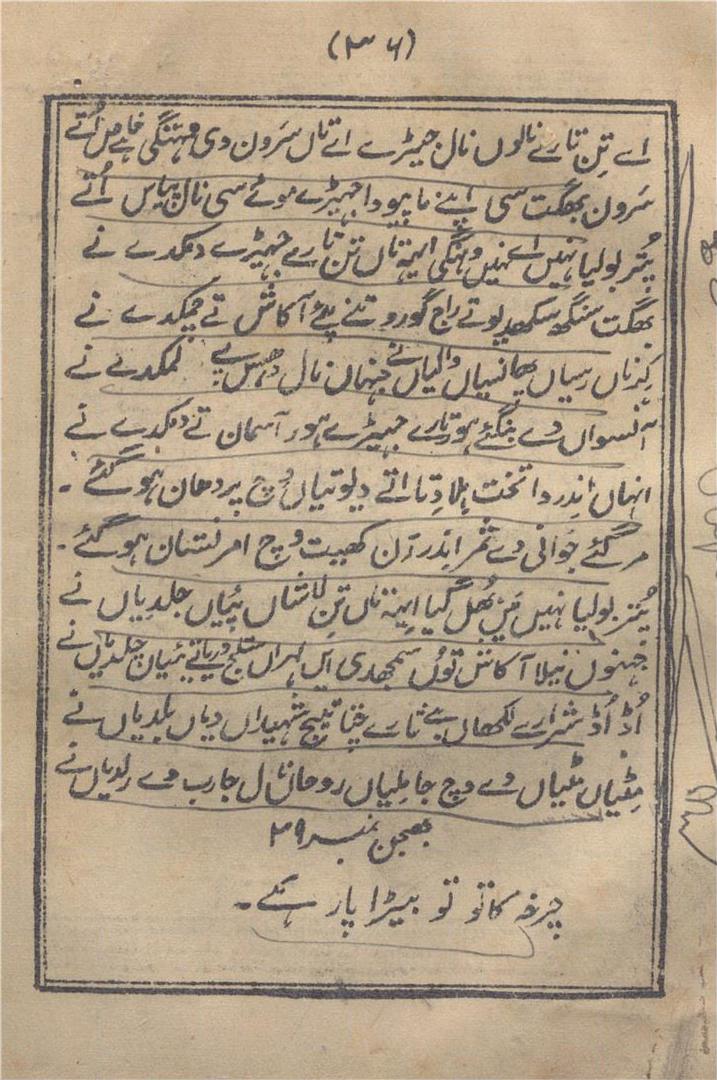 (۳۶)
اے تِن تارے نالوں نال جیہڑے اے تاں سَرون دی وہنگی خاص اُتے
سَرون بھگت سی اپنے ماپیو دا جیہڑے موئے سی نال پیاس اُتے
پُتر بولیا نہیں اے نہیں وہنگی ایہہ تاں تن تارے جیہڑے دمکدے نے
بھگت سنگھ سکھدیو تے راج گورو تنے پئے آکاش تے چمکدے نے
کِرناں رسیاں پھانسیاں والیاں نے جنہاں نال پئے لمکدے نے
آنسواں دے بنگئے ہور تارے جیہڑے ہور آسمان تے دمکدے نے
انہاں اندر دا تخت ہِلا دِتا اتے دیوتیاں وچ پردھان ہو گئے۔
مر گئے جوانی دے ثمر اندر رَن کھیت وچ امر نشان ہو گئے۔
پُتر بولیا نہیں مَیں بُھل گیا ایہہ تاں تِن لاشاں پئیاں جلدیاں نے
جہنوں نیلا آکاش توں سمجھدی ایں لہراں ستلج دریا تے پئیاں چلدیاں نے
اُڈ اُڈ شرارے لکھاں بنے تارے چِتا تیہج شہیداں دیاں بلدیاں نے
مِٹیاں مٹیاں دے وچ جا ملیاں روحاں نال جا رب دے رلدیاں نے
بھجن نمبر ۲۹
چرخہ کاتو تو بیڑا پار ہے۔